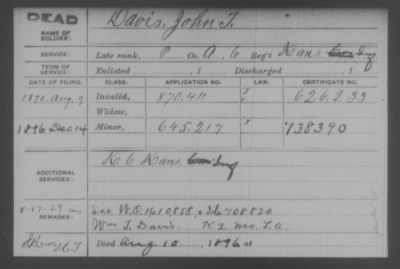 DEAD
Davis, John T.
NAME OF SOLDIER:
SERVICE:
Late rank, P Co. A, 6 Reg't Kans. Inf
TERM OF SERVICE:
Enlisted , 1 Discharged , 1
DATE OF FILING. CLASS. APPLICATION NO. LAW. CERTIFICATE NO.
1890. Aug. 9 Invalid, 870.411 626.233
Widow,
1896 Dec 14 Minor, 645.217 738390
ADDITIONAL SERVICES:
K 6 Kans. Inf
REMARKS:
5-17-29
See W.O. 1610858 & 708820
Wm T. Davis. K 2 Mo. L.A.
Died Aug 10, 1896 at